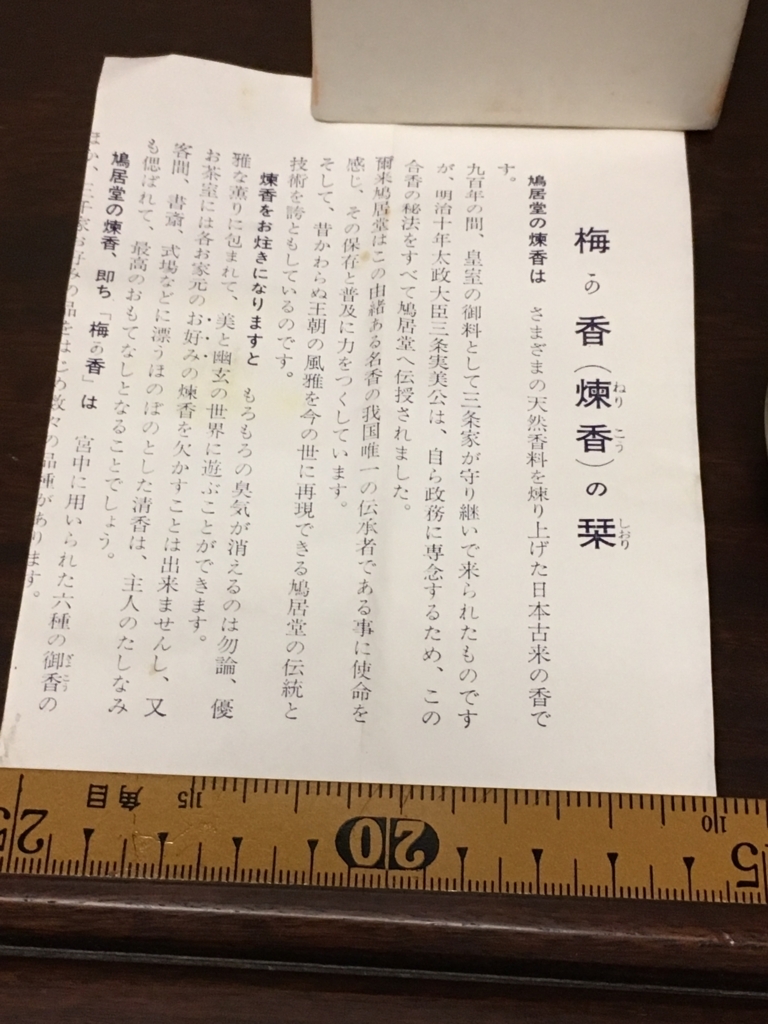 梅の香(煉香)の栞
ねり こう
しおり
鳩居堂の煉香は さまざまの天然香料を煉り上げた日本古来の香で
す。
九百年の間、皇室の御料として三条家が守り継いで来られたものです
が、明治十年太政大臣三条実美公は、自ら政務に専念するため、この
合香の秘法をすべて鳩居堂へ伝授されました。
爾来鳩居堂はこの由緒ある名香の我国唯一の伝承者である事に使命を
感じ、その保存と普及に力をつくしています。
そして、昔かわらぬ王朝の風雅を今の世に再現できる鳩居堂の伝統と
技術を誇ともしているのです。
煉香をお炷きになりますと もろもろの臭気が消えるのは勿論、優
雅な薫りに包まれて、美と幽玄の世界に遊ぶことができます。
お茶室には各お家元のお好みの煉香を欠かすことは出来ませんし、又
客間、書斎、式場などに漂うほのぼのとした清香は、主人のたしなみ
も偲ばれて、最高のおもてなしとなることでしょう。
鳩居堂の煉香、即ち「梅の香」は 宮中に用いられた六種の御香の
ぎょこう
ほか、三千家お好みの品をはじめ数々の品種があります。
25 角目 15 20 10 15